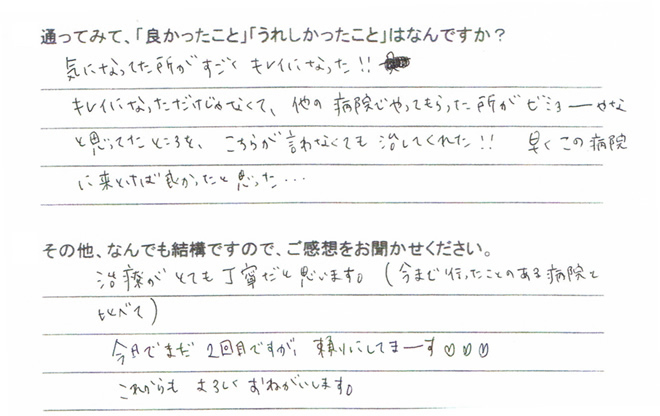 通ってみて、「良かったこと」「うれしかったこと」はなんですか？
気になってた所がすごくキレイになった!!
キレイになっただけじゃなくて、他の病院でやってもらった所がビミョーかな
と思ってたところを、こちらが言わなくても治してくれた!! 早くこの病院
に来とけば良かったと思った…
その他、なんでも結構ですので、ご感想をお聞かせください。
治療がとても丁寧だと思います。(今まで行ったことのある病院と
比べて)
今日でまだ2回目ですが、頼りにしてまーす♡♡♡
これからもよろしくおねがいします。